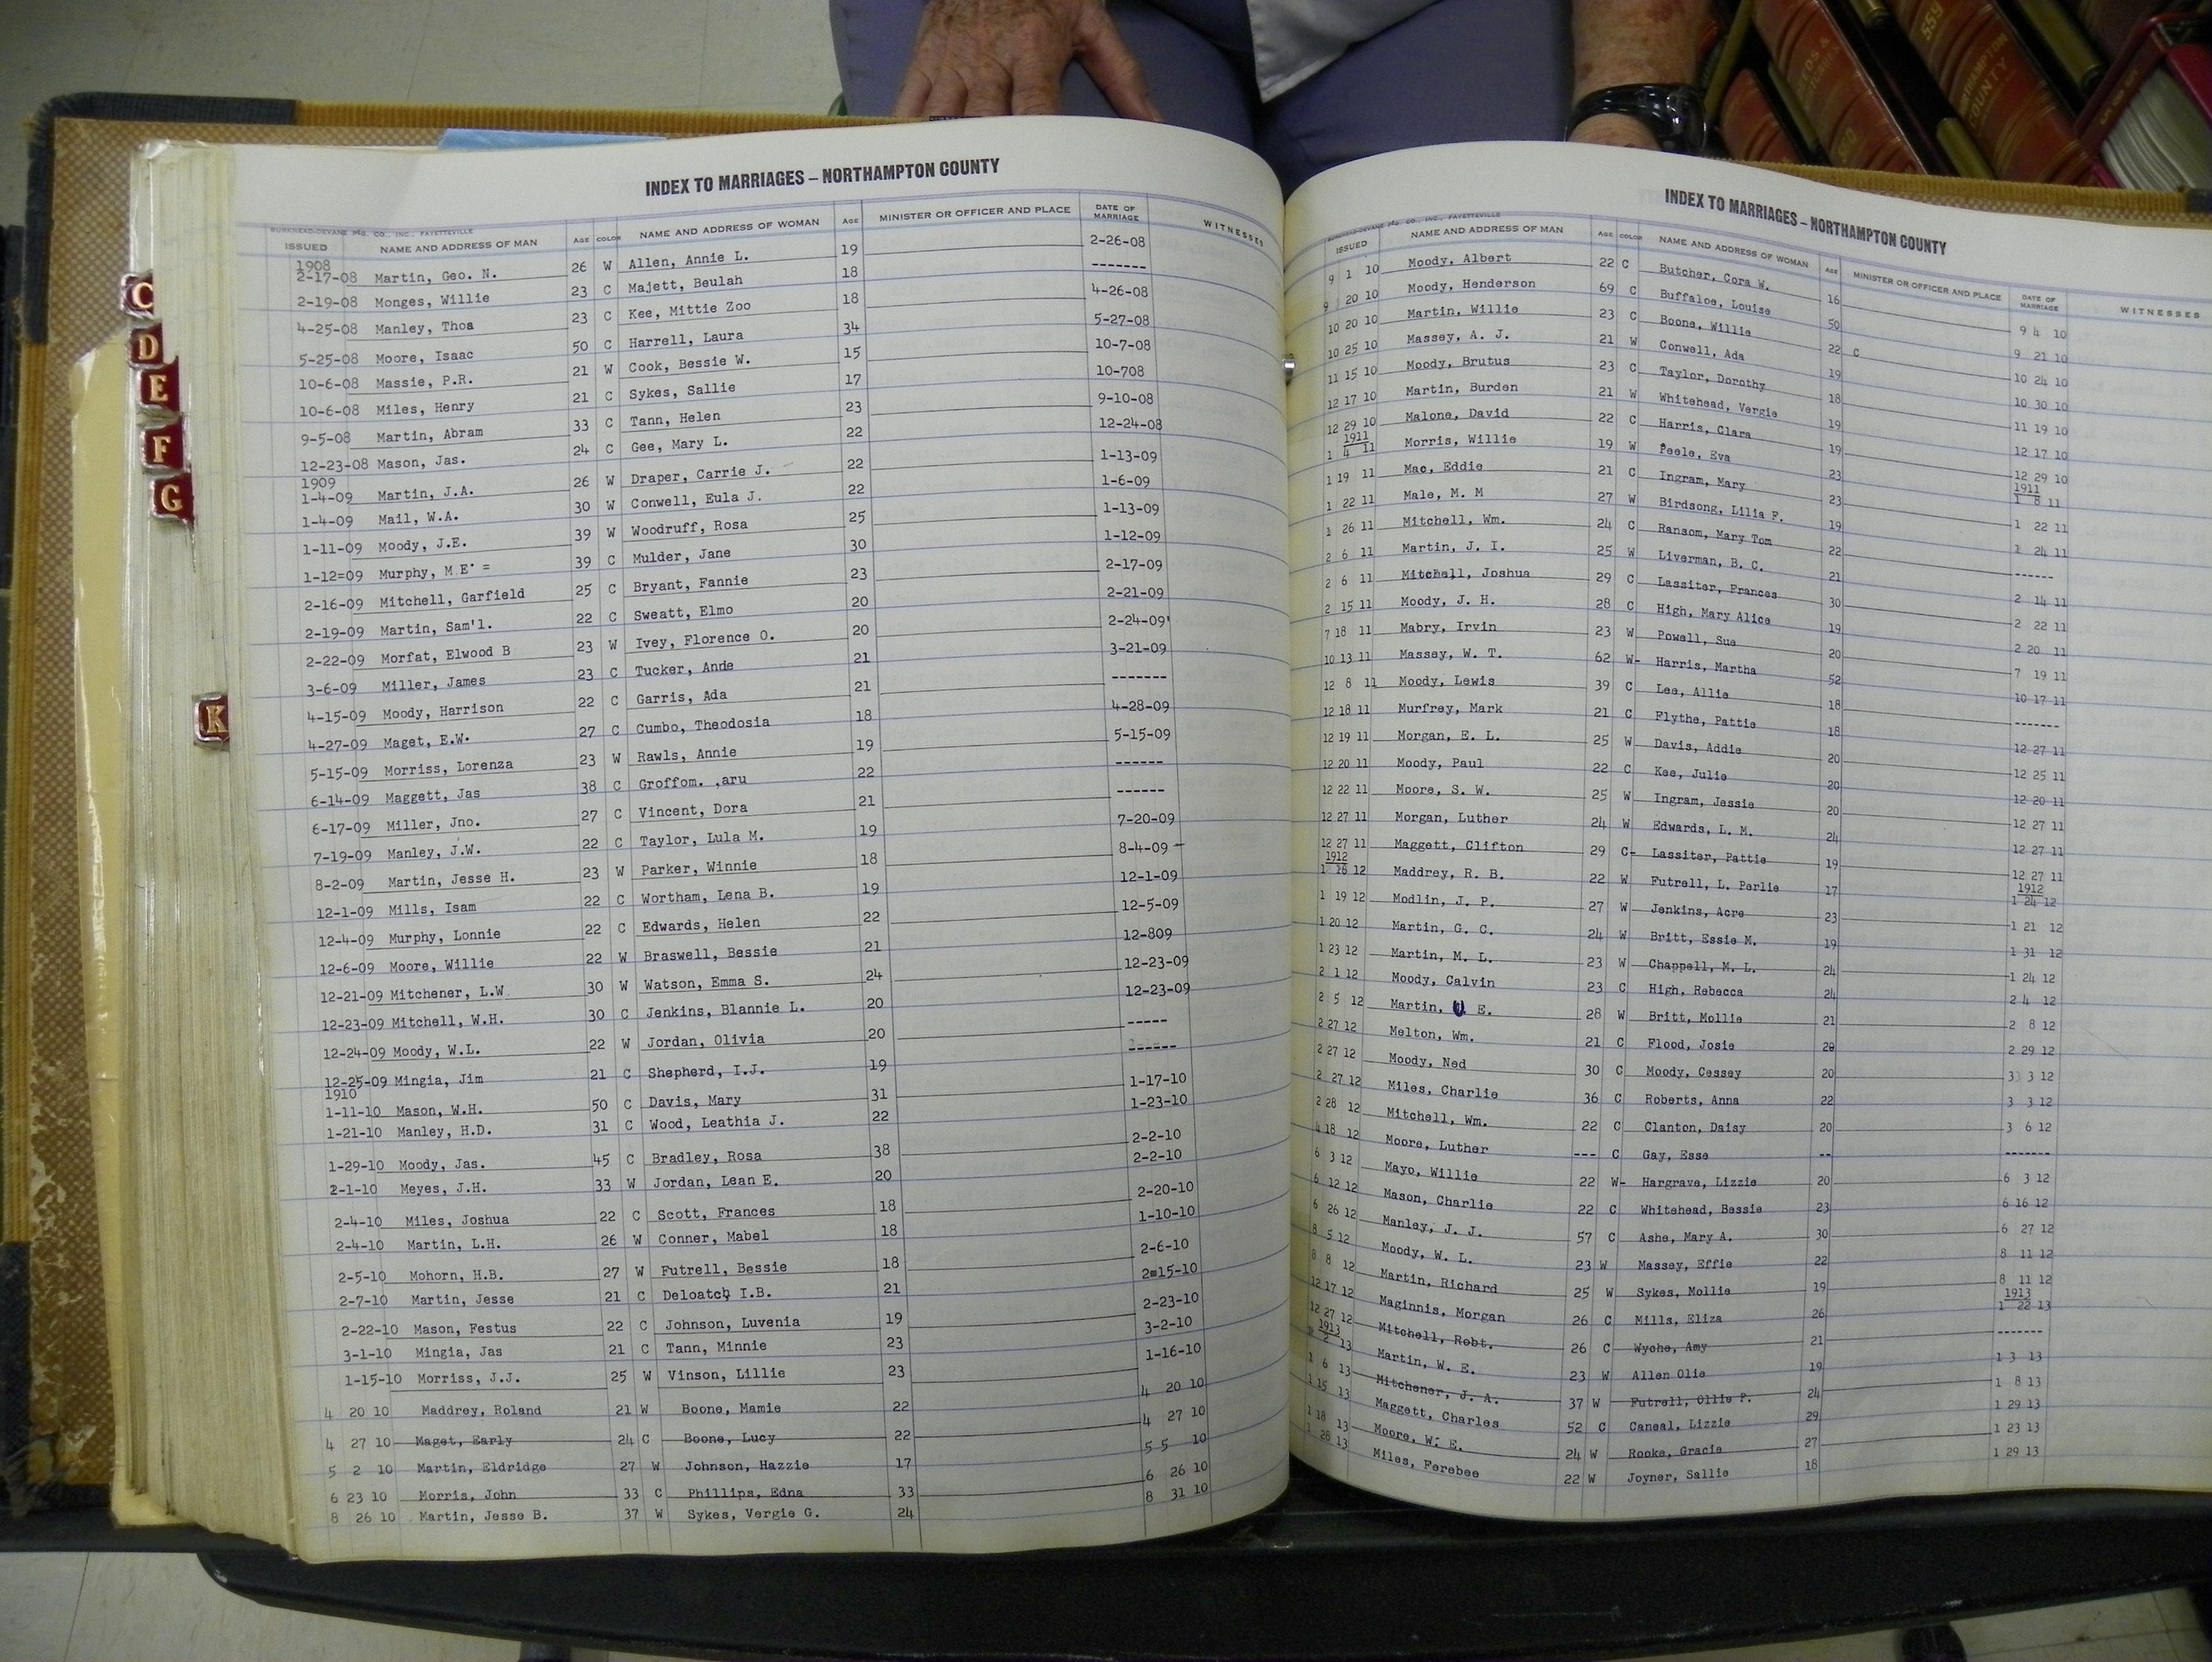 INDEX TO MARRIAGES – NORTHAMPTON COUNTY
BURKHEAD-DEVANE PTG. CO., INC., FAYETTEVILLE
ISSUED NAME AND ADDRESS OF MAN AGE COLOR NAME AND ADDRESS OF WOMAN AGE MINISTER OR OFFICER AND PLACE DATE OF MARRIAGE WITNESSES
1908
2-17-08 Martin, Geo. N. 26 W Allen, Annie L. 19 2-26-08
2-19-08 Monges, Willie 23 C Majett, Beulah 18 -------
4-25-08 Manley, Thos 23 C Kee, Mittie Zoo 18 4-26-08
5-25-08 Moore, Isaac 50 C Harrell, Laura 34 5-27-08
10-6-08 Massie, P.R. 21 W Cook, Bessie W. 15 10-7-08
10-6-08 Miles, Henry 21 C Sykes, Sallie 17 10-708
9-5-08 Martin, Abram 33 C Tann, Helen 23 9-10-08
12-23-08 Mason, Jas. 24 C Gee, Mary L. 22 12-24-08
1909
1-4-09 Martin, J.A. 26 W Draper, Carrie J. 22 1-13-09
1-4-09 Mail, W.A. 30 W Conwell, Eula J. 22 1-6-09
1-11-09 Moody, J.E. 39 W Woodruff, Rosa 25 1-13-09
1-12=09 Murphy, M.E. = 39 C Mulder, Jane 30 1-12-09
2-16-09 Mitchell, Garfield 25 C Bryant, Fannie 23 2-17-09
2-19-09 Martin, Sam'l. 22 C Sweatt, Elmo 20 2-21-09
2-22-09 Morfat, Elwood B 23 W Ivey, Florence O. 20 2-24-09'
3-6-09 Miller, James 23 C Tucker, Ande 21 3-21-09
4-15-09 Moody, Harrison 22 C Garris, Ada 21 -------
4-27-09 Maget, E.W. 27 C Cumbo, Theodosia 18 4-28-09
5-15-09 Morriss, Lorenza 23 W Rawls, Annie 19 5-15-09
6-14-09 Maggett, Jas 38 C Groffom. ,aru 22 ------
6-17-09 Miller, Jno. 27 C Vincent, Dora 21 ------
7-19-09 Manley, J.W. 22 C Taylor, Lula M. 19 7-20-09
8-2-09 Martin, Jesse H. 23 W Parker, Winnie 18 8-4-09
12-1-09 Mills, Isam 22 C Wortham, Lena B. 19 12-1-09
12-4-09 Murphy, Lonnie 22 C Edwards, Helen 22 12-5-09
12-6-09 Moore, Willie 22 W Braswell, Bessie 21 12-809
12-21-09 Mitchener, L.W 30 W Watson, Emma S. 24 12-23-09
12-23-09 Mitchell, W.H. 30 C Jenkins, Blannie L. 20 12-23-09
12-24-09 Moody, W.L. 22 W Jordan, Olivia 20 -----
12-25-09 Mingia, Jim 21 C Shepherd, I.J. 19 ------
1910
1-11-10 Mason, W.H. 50 C Davis, Mary 31 1-17-10
1-21-10 Manley, H.D. 31 C Wood, Leathia J. 22 1-23-10
1-29-10 Moody, Jas. 45 C Bradley, Rosa 38 2-2-10
2-1-10 Meyes, J.H. 33 W Jordan, Lean E. 20 2-2-10
2-4-10 Miles, Joshua 22 C Scott, Frances 18 2-20-10
2-4-10 Martin, L.H. 26 W Conner, Mabel 18 1-10-10
2-5-10 Mohorn, H.B. 27 W Futrell, Bessie 18 2-6-10
2-7-10 Martin, Jesse 21 C Deloatch I.B. 21 2=15-10
2-22-10 Mason, Festus 22 C Johnson, Luvenia 19 2-23-10
3-1-10 Mingia, Jas 21 C Tann, Minnie 23 3-2-10
1-15-10 Morriss, J.J. 25 W Vinson, Lillie 23 1-16-10
4 20 10 Maddrey, Roland 21 W Boone, Mamie 22 4 20 10
4 27 10 Maget, Early 24 C Boone, Lucy 22 4 27 10
5 2 10 Martin, Eldridge 27 W Johnson, Hazzie 17 5 5 10
6 23 10 Morris, John 33 C Phillips, Edna 33 6 26 10
8 26 10 Martin, Jesse B. 37 W Sykes, Vergie G. 24 8 31 10
INDEX TO MARRIAGES – NORTHAMPTON COUNTY
BURKHEAD-DEVANE PTG. CO., INC., FAYETTEVILLE
ISSUED NAME AND ADDRESS OF MAN AGE COLOR NAME AND ADDRESS OF WOMAN AGE MINISTER OR OFFICER AND PLACE DATE OF MARRIAGE WITNESSES
9 1 10 Moody, Albert 22 C Butcher, Cora W. 16 9 4 10
9 20 10 Moody, Henderson 69 C Buffaloe, Louise 50 9 21 10
10 20 10 Martin, Willie 23 C Boone, Willie 22 C 10 24 10
10 25 10 Massey, A. J. 21 W Conwell, Ada 19 10 30 10
11 15 10 Moody, Brutus 23 C Taylor, Dorothy 18 11 19 10
12 17 10 Martin, Burden 21 W Whitehead, Vergie 19 12 17 10
12 29 10 Malone, David 22 C Harris, Clara 19 12 29 10
1911 1911
1 4 11 Morris, Willie 19 W Peele, Eva 23 1 8 11
1 19 11 Mac, Eddie 21 C Ingram, Mary 23 1 22 11
1 22 11 Male, M. M 27 W Birdsong, Lilia F. 19 1 24 11
1 26 11 Mitchell, Wm. 24 C Ransom, Mary Tom 22 ------
2 6 11 Martin, J. I. 25 W Liverman, B. C. 21 2 14 11
2 6 11 Mitchell, Joshua 29 C Lassiter, Frances 30 2 22 11
2 15 11 Moody, J. H. 28 C High, Mary Alice 19 2 20 11
7 18 11 Mabry, Irvin 23 W Powell, Sue 20 7 19 11
10 13 11 Massey, W. T. 62 W- Harris, Martha 52 10 17 11
12 8 11 Moody, Lewis 39 C Lee, Allie 18 -------
12 18 11 Murfrey, Mark 21 C Flythe, Pattie 18 12 27 11
12 19 11 Morgan, E. L. 25 W Davis, Addie 20 12 25 11
12 20 11 Moody, Paul 22 C Kee, Julie 20 12 20 11
12 22 11 Moore, S. W. 25 W Ingram, Jessie 20 12 27 11
12 27 11 Morgan, Luther 24 W Edwards, L. M. 24 12 27 11
12 27 11 Maggett, Clifton 29 C- Lassiter, Pattie 19 12 27 11
1912 1912
1 16 12 Maddrey, R. B. 22 W Futrell, L. Perlie 17 1 24 12
1 19 12 Modlin, J. P. 27 W Jenkins, Acre 23 1 21 12
1 20 12 Martin, G. C. 24 W Britt, Essie M. 19 1 31 12
1 23 12 Martin, M. L. 23 W Chappell, M. L. 24 1 24 12
2 1 12 Moody, Calvin 23 C High, Rebecca 24 2 4 12
2 5 12 Martin, U E. 28 W Britt, Mollie 21 2 8 12
2 27 12 Melton, Wm. 21 C Flood, Josie 28 2 29 12
2 27 12 Moody, Ned 30 C Moody, Cessey 20 33 3 12
2 27 12 Miles, Charlie 36 C Roberts, Anna 22 3 3 12
2 28 12 Mitchell, Wm. 22 C Clanton, Daisy 20 3 6 12
4 18 12 Moore, Luther --- C Gay, Esse -- -------
6 3 12 Mayo, Willie 22 W- Hargrave, Lizzie 20 6 3 12
6 12 12 Mason, Charlie 22 C Whitehead, Bessie 23 6 16 12
6 26 12 Manley, J. J. 57 C Ashe, Mary A. 30 6 27 12
8 5 12 Moody, W. L. 23 W Massey, Effie 22 8 11 12
8 8 12 Martin, Richard 25 W Sykes, Mollie 19 8 11 12
1913
12 17 12 Maginnis, Morgan 26 C Mills, Eliza 26 1 22 13
12 27 12 Mitchell, Robt. 26 C Wyche, Amy 21 -------
1913
2 13 Martin, W. E. 23 W Allen Olie 19 1 3 13
1 6 13 Mitchener, J. A. 37 W Futrell, Ollie P. 24 1 8 13
1 15 13 Maggett, Charles 52 C Caneal, Lizzie 29 1 29 13
1 18 13 Moore, W. E. 24 W Rooke, Gracie 27 1 23 13
1 28 13 Miles, Ferebee 22 W Joyner, Sallie 18 1 29 13
C
D
E
F
G
K
559
NORTHAMPTON COUNTY